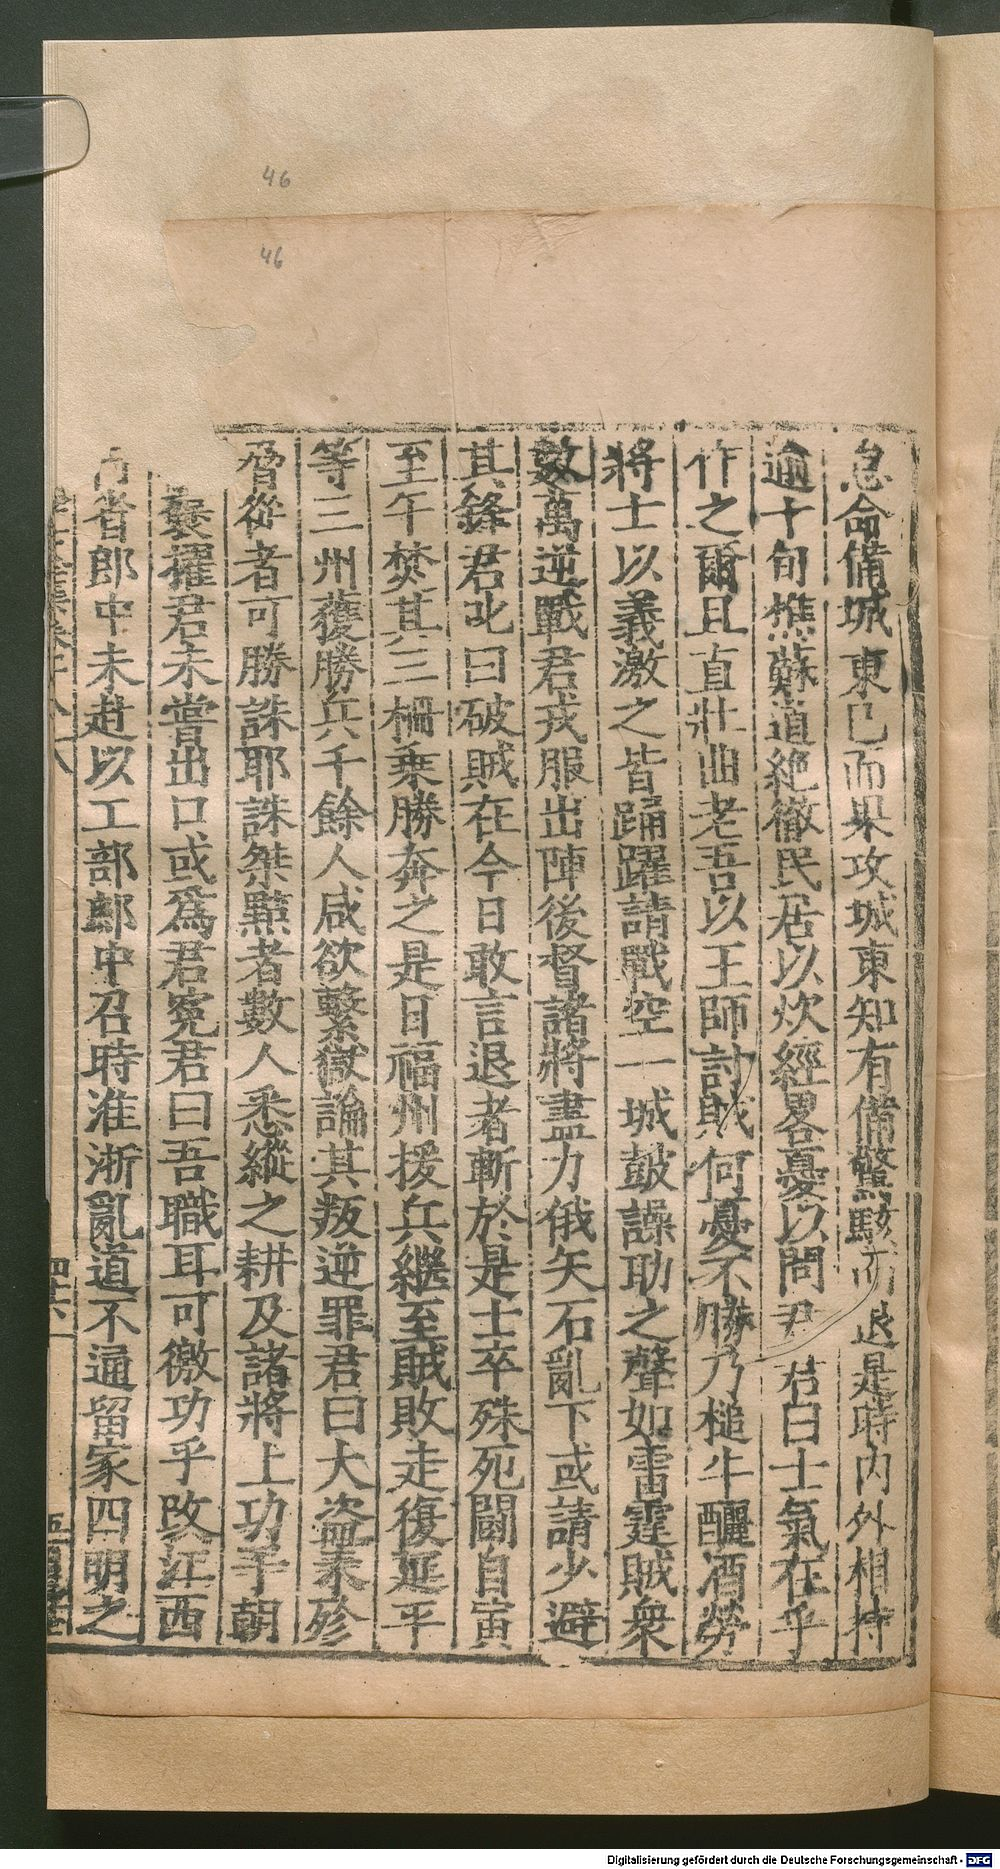 46
46
急命備城東已而果攻城東知有備驚駭而退是時内外相持
逾十旬樵蘇道絶徹民居以炊經畧憂以問尹君曰士氣在乎
作之爾且直壯曲老吾以王師討賊何憂不勝乃槌牛釃酒勞
將士以義激之皆踊躍請戰空一城鼓譟助之聲如雷霆賊衆
數萬逆戰君戎服出陣後督諸將盡力俄矢石亂下或請少避
其鋒君叱曰破賊在今日敢言退者斬於是士卒殊死鬪自寅
至午焚其三柵乗勝奔之是日福州援兵繼至賊敗走復延平
等三州獲勝兵千餘人咸欲繫獄論其叛逆罪君曰大盗未殄
脅從者可勝誅耶誅桀黠者數人悉縱之耕及諸將上功于朝
襃擢君未嘗出口或爲君寃君曰吾職耳可徼功乎改江西
行省郎中未赴以工部郎中召時淮浙亂道不通留家四明之
四十六
Digitalisierung gefördert durch die Deutsche Forschungsgemeinschaft - DFG